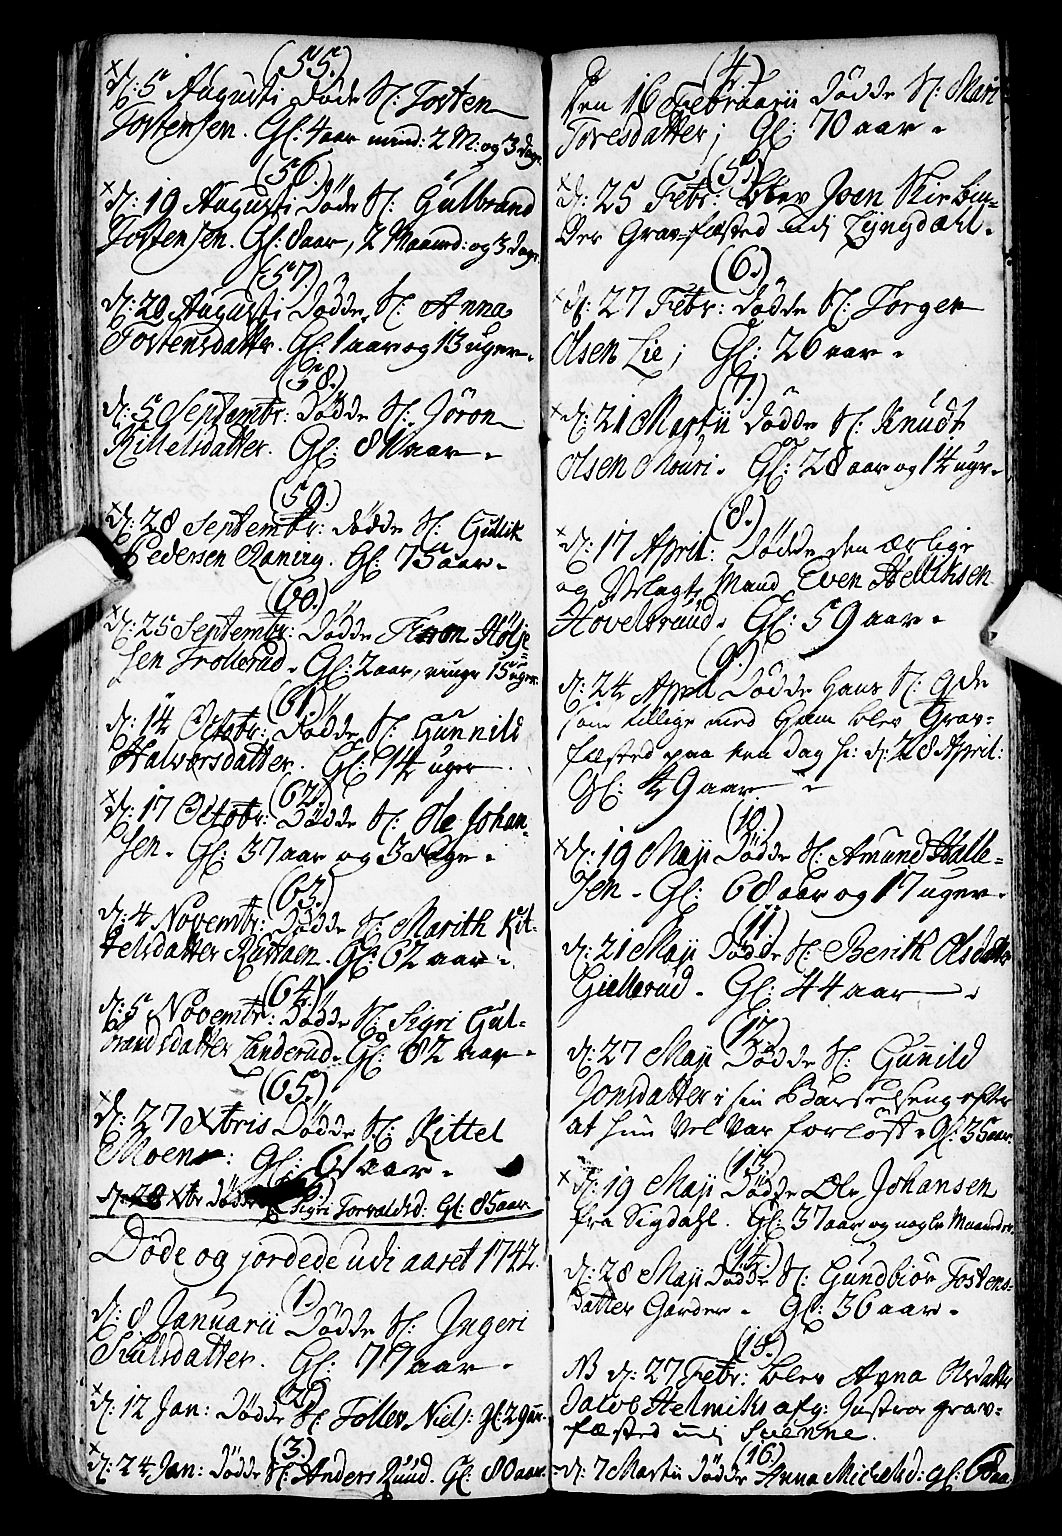 (55.)
d: 5 Augusti Døde Sl: Tosten
Tostensen. Gl: 4 aar mind: 2 M: og 3 dage.
(56.)
d: 19 Augusti Døde Sl: Gulbrand
Tostensen. Gl: 8 aar, 2 Maaned: og 3 dage.
(57.)
d: 20 Augusti Dødde Sl: Anna
Tostensdatter. Gl: 1 aar og 13 uger.
(58.)
d: 5 Septembr: Dødde Sl: Jöron
Kittelsdatter. Gl: 81 aar.
(59.)
d: 28 Septembr: Dødde Sl: Gullik
Pedersen. Gl: 75 aar.
(60.)
d: 25 Septembr: Dødde Høljel-
sen Trollerud. Gl: 2 aar, 15 uger.
(61.)
d: 14 Octobr: Dødde Sl: Gunnild
Halvorsdatter. Gl: 94 uger.
(62.)
d: 17 Octobr: Dødde Sl: Ole Johan-
sen. Gl: 37 aar og 3 Dage.
(63.)
d: 4 Novembr: Dødde Sl: Marith Kit-
telsdatter. Gl: 62 aar.
(64.)
d: 5 Novembr: Dødde Sl: Sigri Gul-
brandsdatter Landerud. Gl: 82 aar.
(65.)
d: 27 Xbris Dødde Sl: Kittel
Moen: Gl: 61 aar.
d: 28 Xbr Dødde Sigri Torvaldsd: Gl: 85 aar
Døde og jordede udi aaret 1742.
(1.)
d: 8 Januarii Dødde Sl: Ingeri
Kulsdatter. Gl: 77 aar.
(2.)
d: 12 Jan: Dødde Sl: Tollev Niels: gl: 29 aar.
(3.)
d: 24 Jan: Dødde Sl: Anders Ruud. Gl: 80 aar.
(4.)
Den 16 Februarii Dødde Sl: Mari
Toresdatter; Gl: 70 aar.
(5.)
d: 25 Febr: blev Joen
Grav-fæsted udi Lyngdæhl.
(6.)
d: 27 Febr: Dødde Sl: Jörgen
Olsen Lie; Gl: 26 aar.
(7.)
d: 21 Martii Dødde Sl: Knudt
Olsen Mouri. Gl: 28 aar og 14 uger.
(8.)
d: 17 April: Dødde den ærlige
og Velagte Mand Even Helliksen
Hovelsruud. Gl: 59 aar.
(9.)
d: 24 April Dødde Hans Sl:
som tillige med Ham blev Grav-
fæsted paa den dag s: d: 28 April:
Gl: 49 aar
(10.)
d: 19 Maji Dødde Sl: Amund Halle-
sen. Gl: 68 aar og 17 uger.
(11.)
d: 21 Maji Dødde Sl: Berith Olsdatter
Gjellerud. Gl: 44 aar.
(12.)
d: 27 Maji Dødde Sl: Gunild
Jonsdatter i sin Barselseng efter
at hun Vel Var forløst. Gl: 35 aar.
(13.)
d: 19 Maji Dødde Ole Johansen
fra Sigdahl. Gl: 37 aar og nogle Maaneder.
(14.)
d: 28 Maji Dødde Sl: Gundbiør Tostens-
datter Garder. Gl: 36 aar.
(15.)
NB d: 27 Febr: blev Anna Olsdatter
Jacob Helmiks afg: Hustroe grav-
fæsted udi Svenne.
(16.)
d: 7 Martii Dødde Anna Michelsd: gl: 68 aar